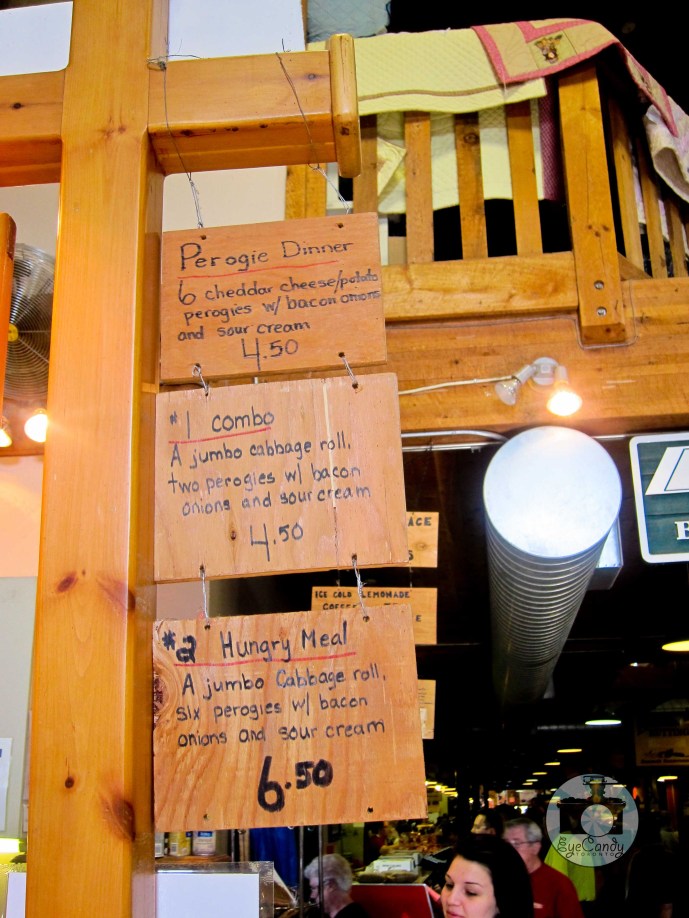 Perogie Dinner
6 cheddar cheese/potato
perogies w/ bacon onions
and sour cream
4.50
#1 combo
A jumbo cabbage roll,
two perogies w/ bacon
onions and sour cream
4.50
#2 Hungry Meal
A jumbo Cabbage roll,
six perogies w/ bacon
onions and sour cream
6.50
ICE COLD LEMONADE
EyeCandy
TORONTO